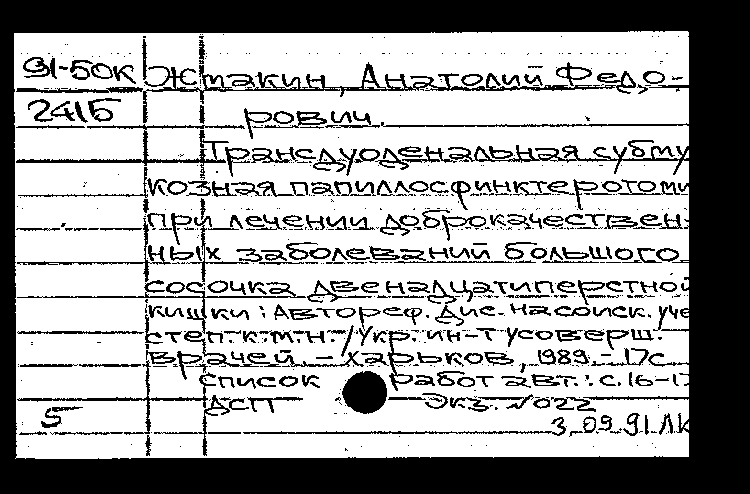 91-50к Жмакин, Анатолий Федо-
2415 рович.
Трансдуоденальная субму
козная папиллосфинктеротоми
при лечении доброкачествен-
ных заболеваний большого
сосочка двенадцатиперстной
кишки : Автореф. Дис. на соиск. уче
степ. к.м.н. / Укр. ин-т усоверш.
врачей. – Харьков, 1989. – 17с
Список работ авт.: с. 16-17
ДСП Экз. №022
5 3.09.91 ЛК